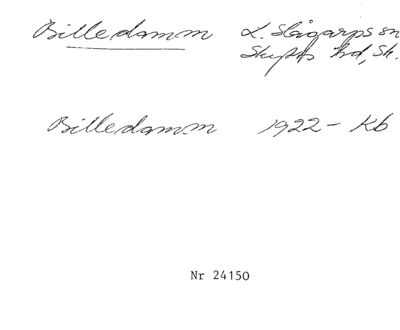 Billedamm L. Slågarps sn
Skytts hd, Sk.
Billedamm 1922 - Kb
Nr 24150